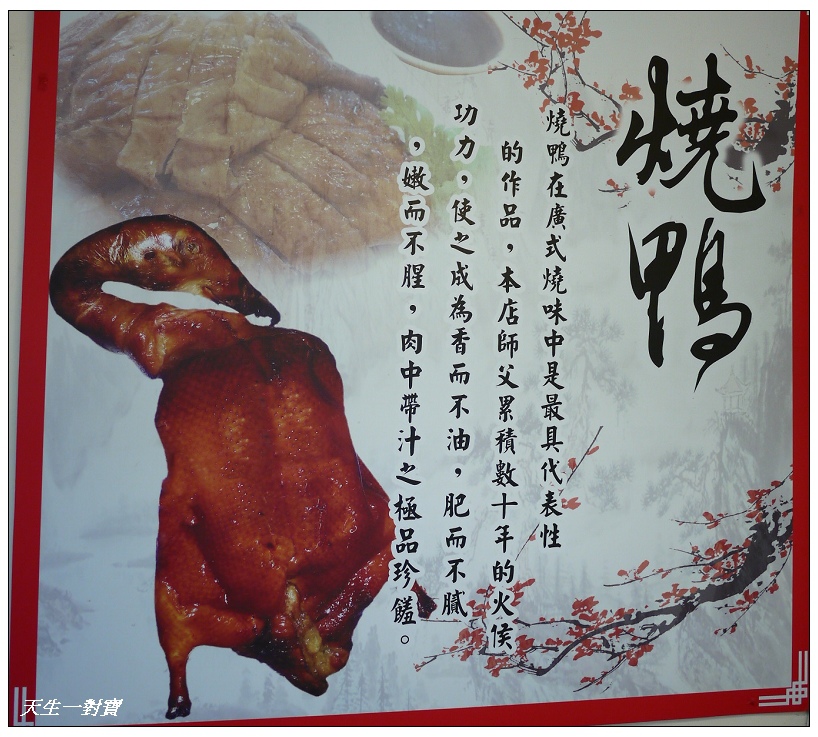 燒鴨
燒鴨在廣式燒味中是最具代表性
的作品，本店師父累積數十年的火侯
功力，使之成為香而不油，肥而不膩
，嫩而不腥，肉中帶汁之極品珍饈。
天生一對寶